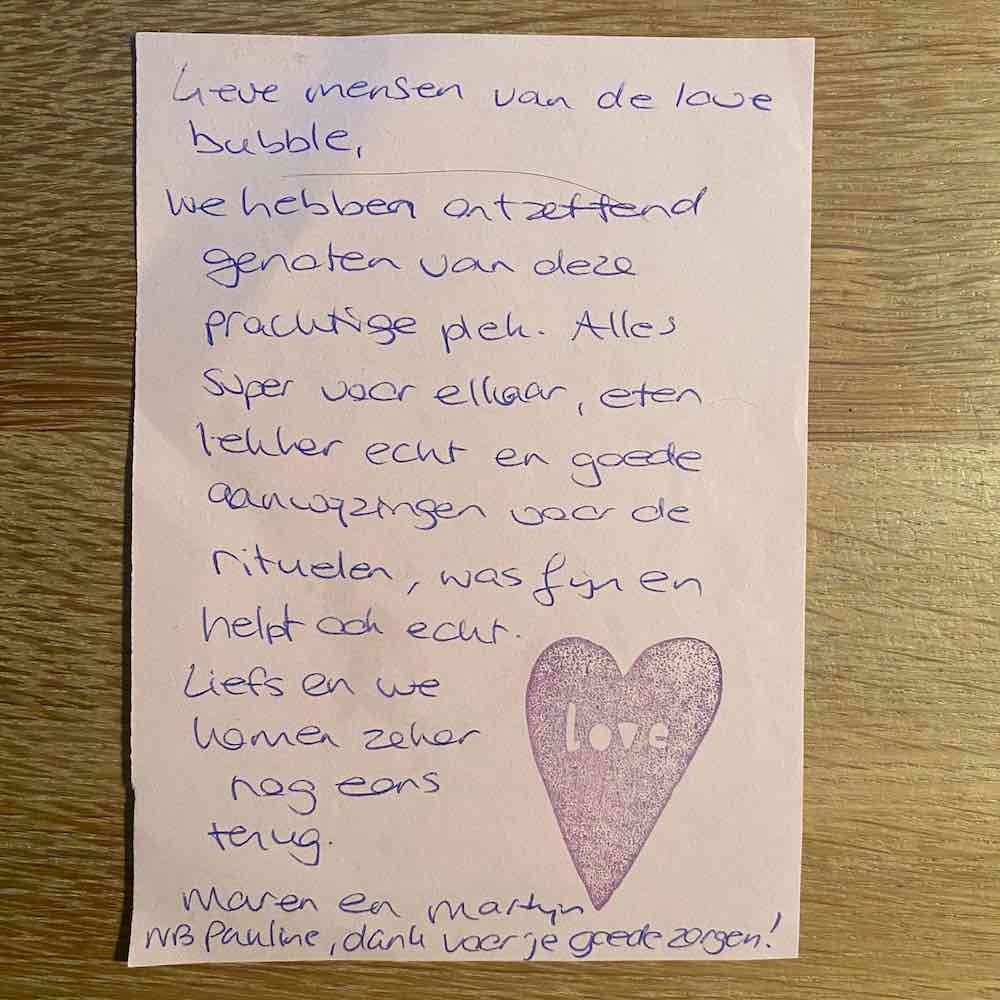 Lieve mensen van de love
bubble,
We hebben ontzettend
genoten van deze
prachtige plek. Alles
super voor elkaar, eten
lekker echt en goede
aanwijzingen voor de
rituelen, was fijn en
helpt ook echt.
Liefs en we
komen zeker
nog eens
terug.
love
Maren en Martijn
NB Pauline, dank voor je goede zorgen!